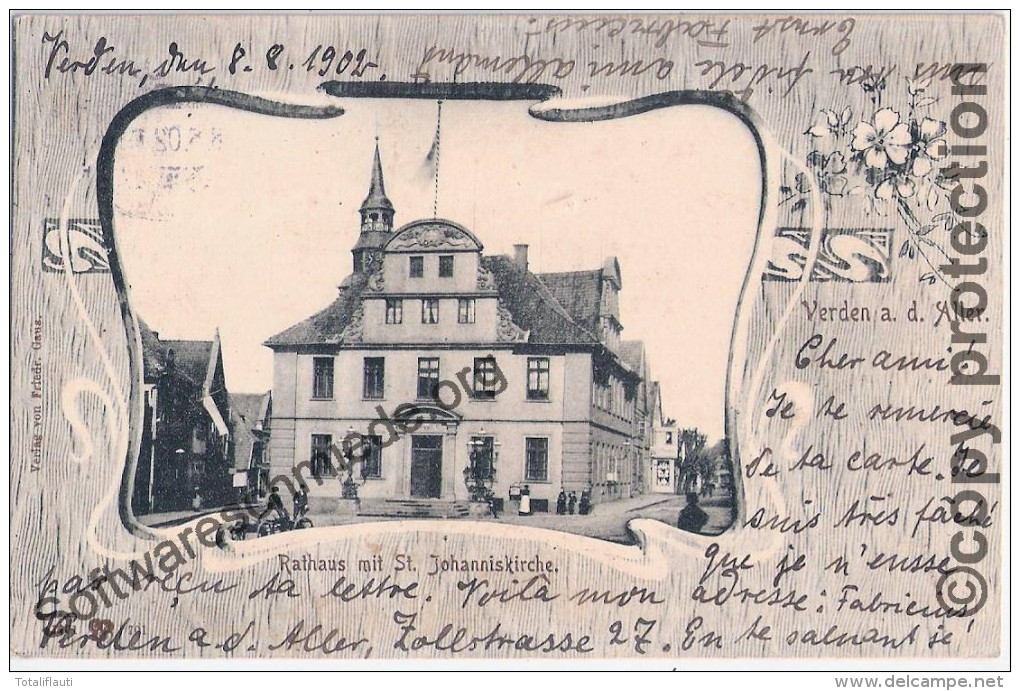 Verden, den 8. 8. 1902.
Verden a. d. Aller.
Cher ami!
Je te remercie
de ta carte. Je
suis très fâché
que je n'eusse
pas reçu ta lettre. Voilà mon adresse: Fabricius,
Verden a. d. Aller, Zollstrasse 27. En te saluant je
suis ton fidèle ami allemand
Ernst Fabricius.
Rathaus mit St. Johanniskirche.
Verlag von Friedr. Gaus.
Softwareschmiede.org
©copy protection
Totaliflauti
http://www.delcampe.net